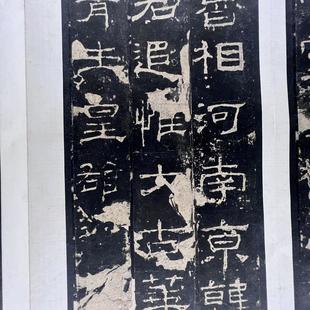 相河南京韓
君追惟大古華
胥生皇雄